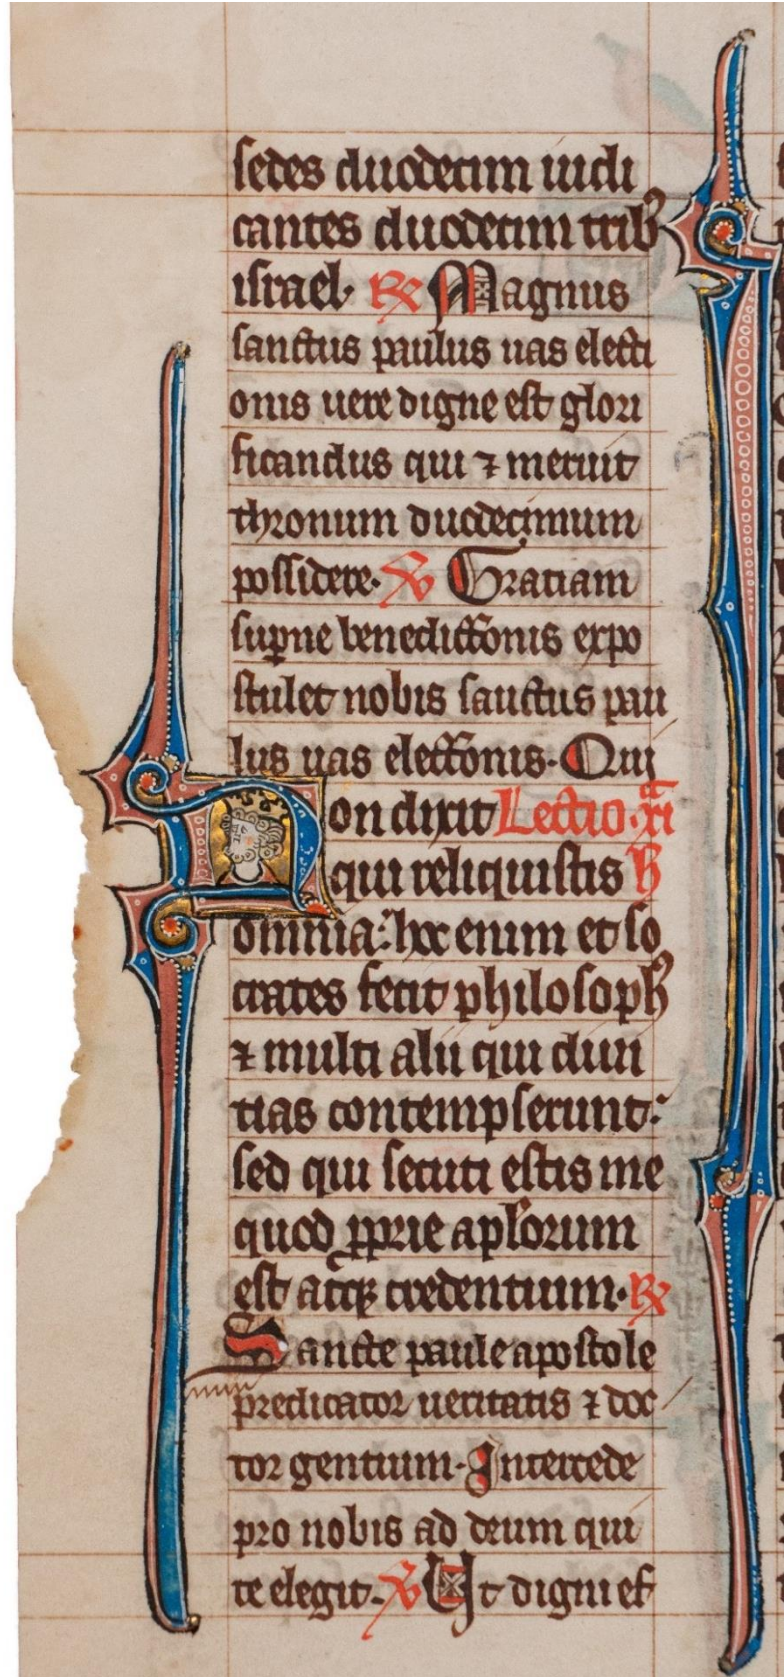 sedes duodecim iudi
cantes duodecim tribꝰ
israel· ℟ Magnus
sanctus paulus uas electi
onis uere digne est glori
ficandus qui ⁊ meruit
thronum duodecimum
possidere· ℣ Gratiam
sup̲ne benedictōnis expo
stulet nobis sanctus pau
lus uas electōnis· Qui
Non dixit Lectio·xi
qui reliquistis h̄
omnia: hoc enim et so
crates fecit philosophꝰ
⁊ multi alii qui diui
tias contempserunt:
sed qui secuti estis me
quod ꝓprie apl̄orum
est atqꝫ credentium· ℟
Sancte paule apostole
predicator ueritatis ⁊ doc
tor gentium· Intercede
pro nobis ad deum qui
te elegit· ℣ Ut digni ef